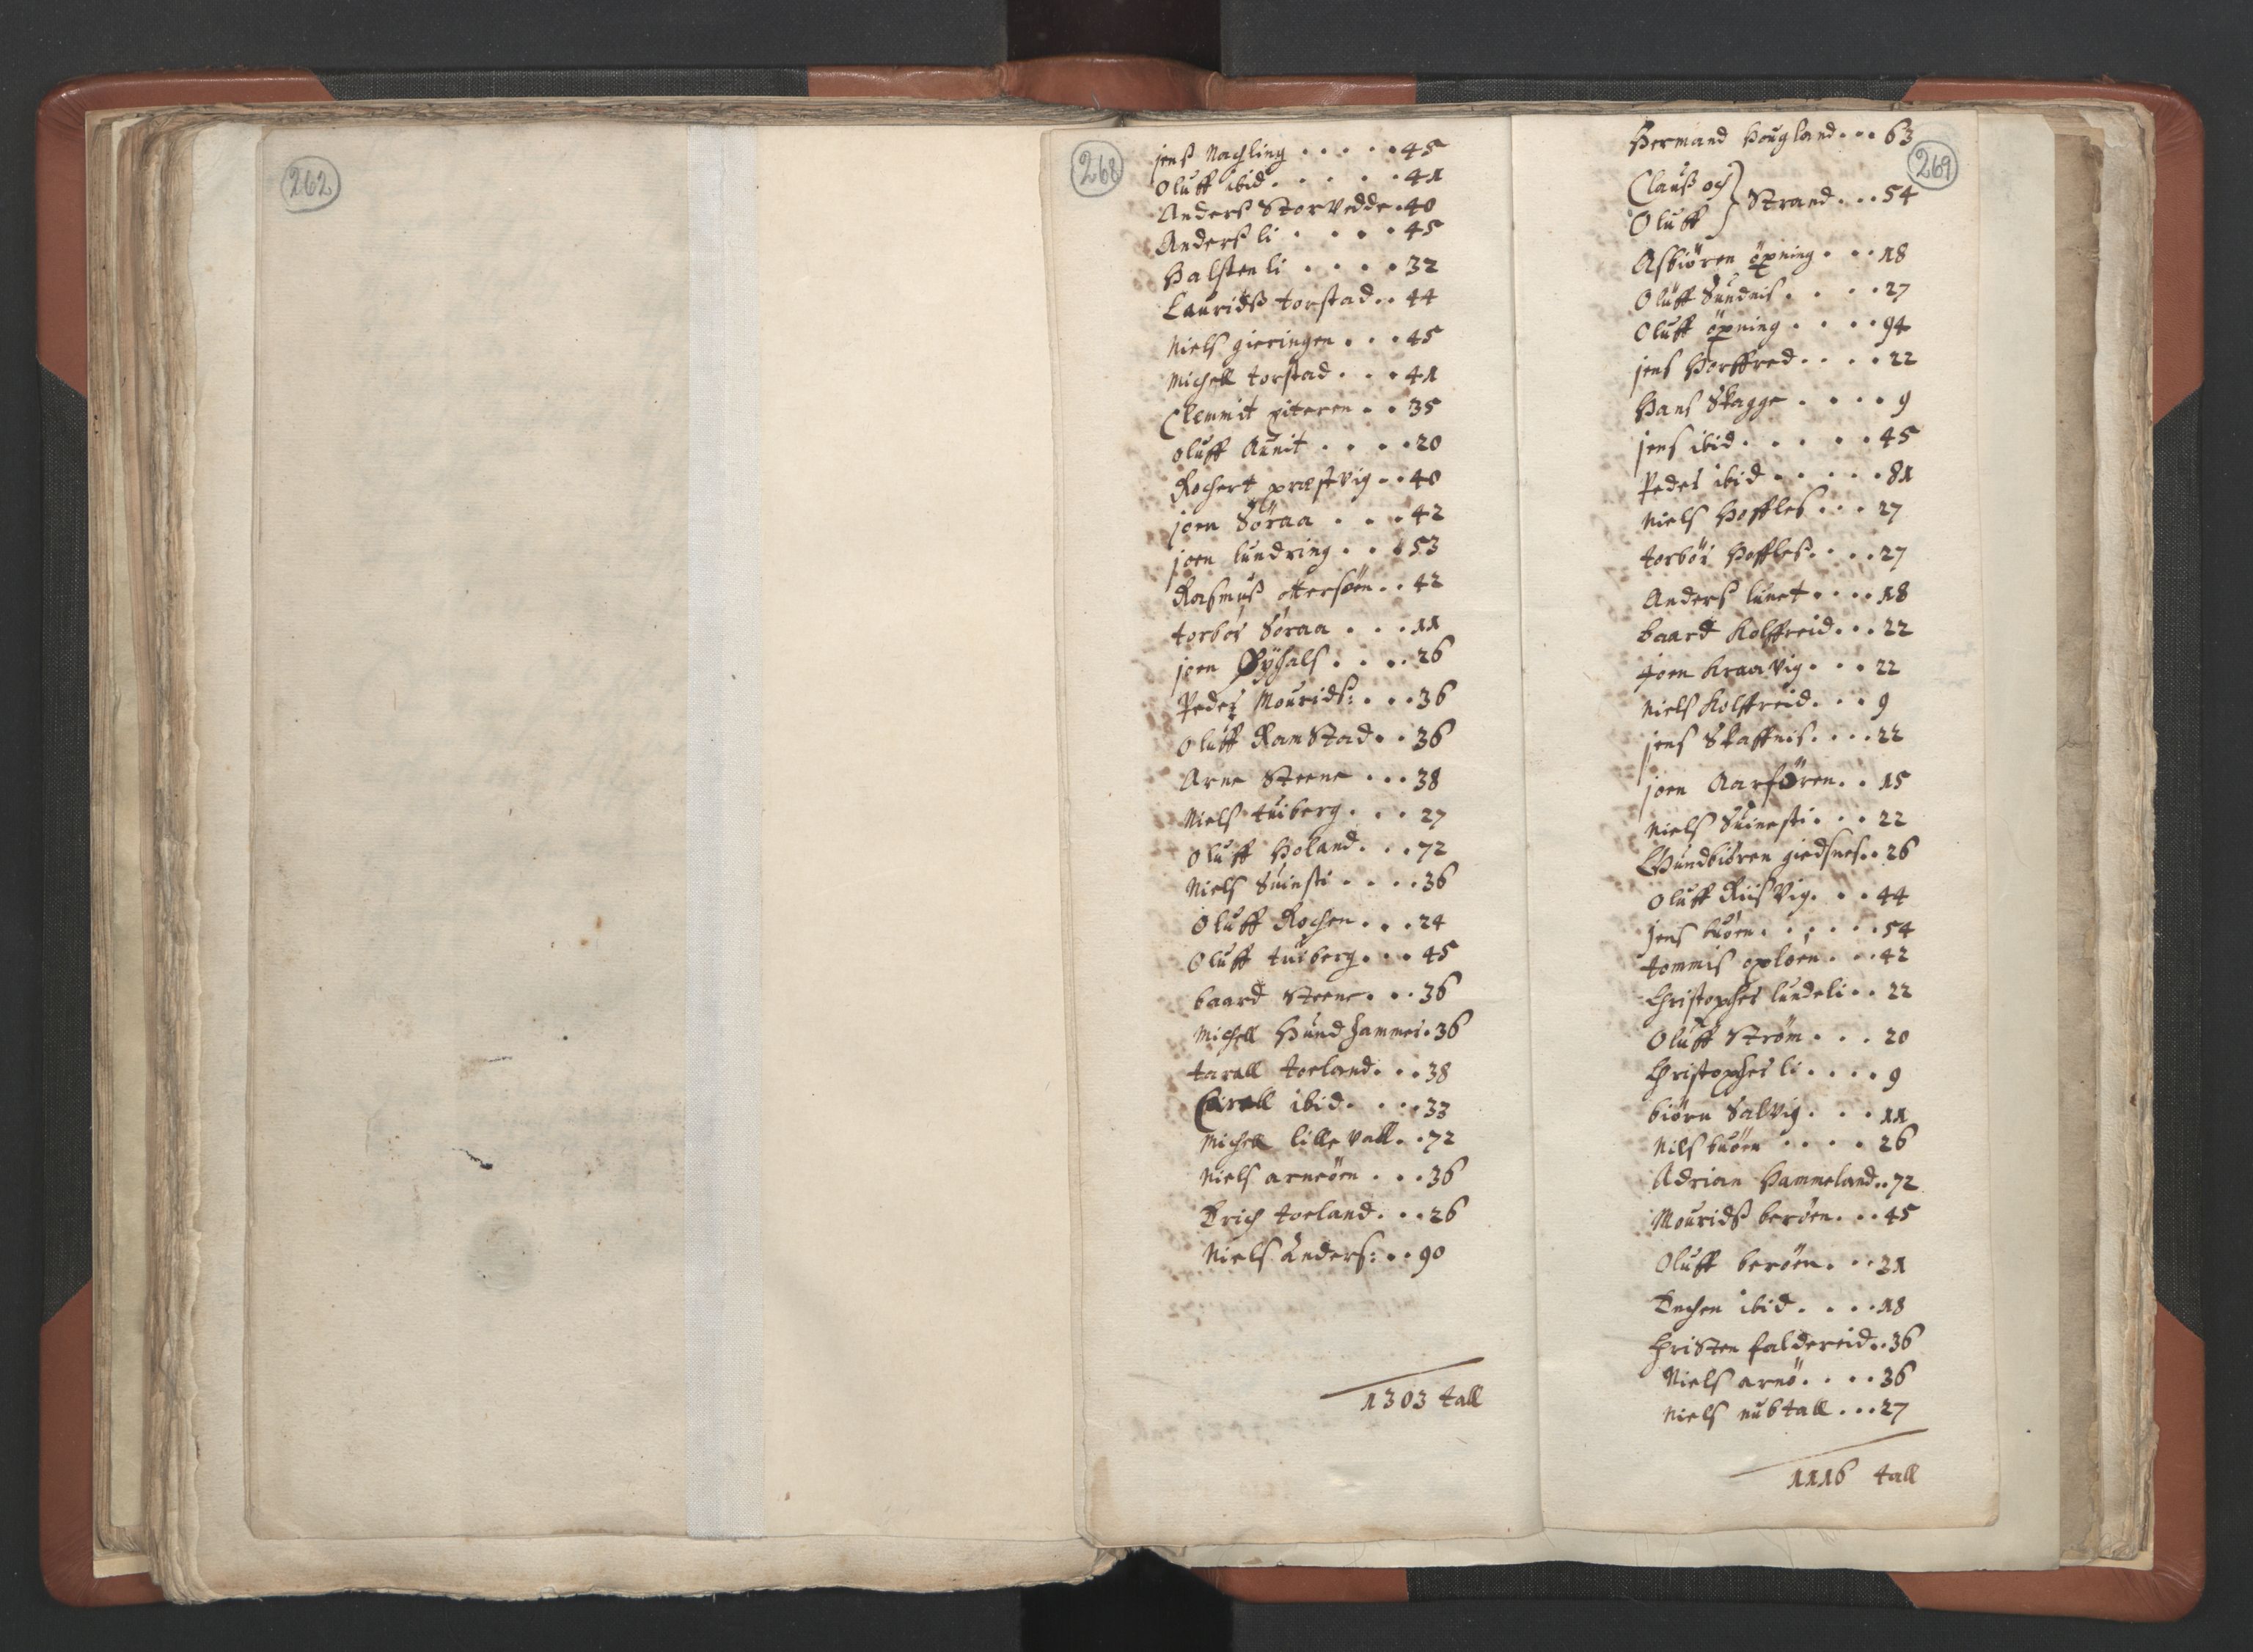 262
268
jens Nachling . . . . . 45
Oluff ibid . . . . . 41
Anders Storvedde . 40
Anders li . . . . . 45
Halsten li . . . . 32
Lauridß torstad . . 44
Niels gieringen . . . 45
Michell torstad . . . 41
Clemmit piteren . . 35
oluff Aunit . . . . 20
Rochert præstvig . . 40
joen Söraa . . . 42
joen lundring . . . 53
Rasmuß ottersøen . . 42
torbör Söraa . . . 11
joen Øÿhals . . . . 26
Peder Mourids: . . . 36
Oluff Ramstad . . 36
Arne Steene . . . 38
Niels tuiberg . . . 27
Oluff Holand . . . 72
Niels Suinsti . . . . 36
Oluff Rochen . . . 24
Oluff tuiberg . . . 45
baard Steene . . . 36
Michell Hundhammer . 36
tarall toeland . . . 38
ibid . . . . 33
Michell lille vall . . 72
Niels arneöen . . . 36
Erich toeland . . . 26
Niels Anders: . . 90
1303 tall
269
Hermand Hougland . . . 63
Clauß och
Oluff } Strand . . . 54
Asbiören öpning . . . 18
Oluff Sundnis . . . . 27
Oluff öpning . . . . 94
jens Horffred . . . . 22
Hans Skagge . . . . 9
jens ibid . . . . . 45
Peder ibid . . . . . 81
Niels Hoffles . . . 27
torbör Hoffles . . . . 27
Anders lunet . . . . 18
baard Kolffreid . . . 22
joen Kraavig . . . 22
Niels Kolffreid . . . 9
jens Skaffnis . . . . 22
joen Aarsören . . 15
Niels Suinesti . . . 22
Gundbiören giedsnes . . 26
Oluff Riisvig . . . 44
jens buöen . . . . . . 54
tommis oploen . . . 42
Christopher lundeli . . 22
Oluff Ström . . . 20
Christopher li . . . . 9
biörn Salvig . . . 11
Nils buöen . . . . 26
Adrian Hammeland . . 72
Mouridß beröen . . . 45
Oluff beröen . . . 21
Enchen ibid . . . . 18
Christen faldereid . . 36
Niels arnö . . . . 36
Niels nubtall . . . 27
1116 tall